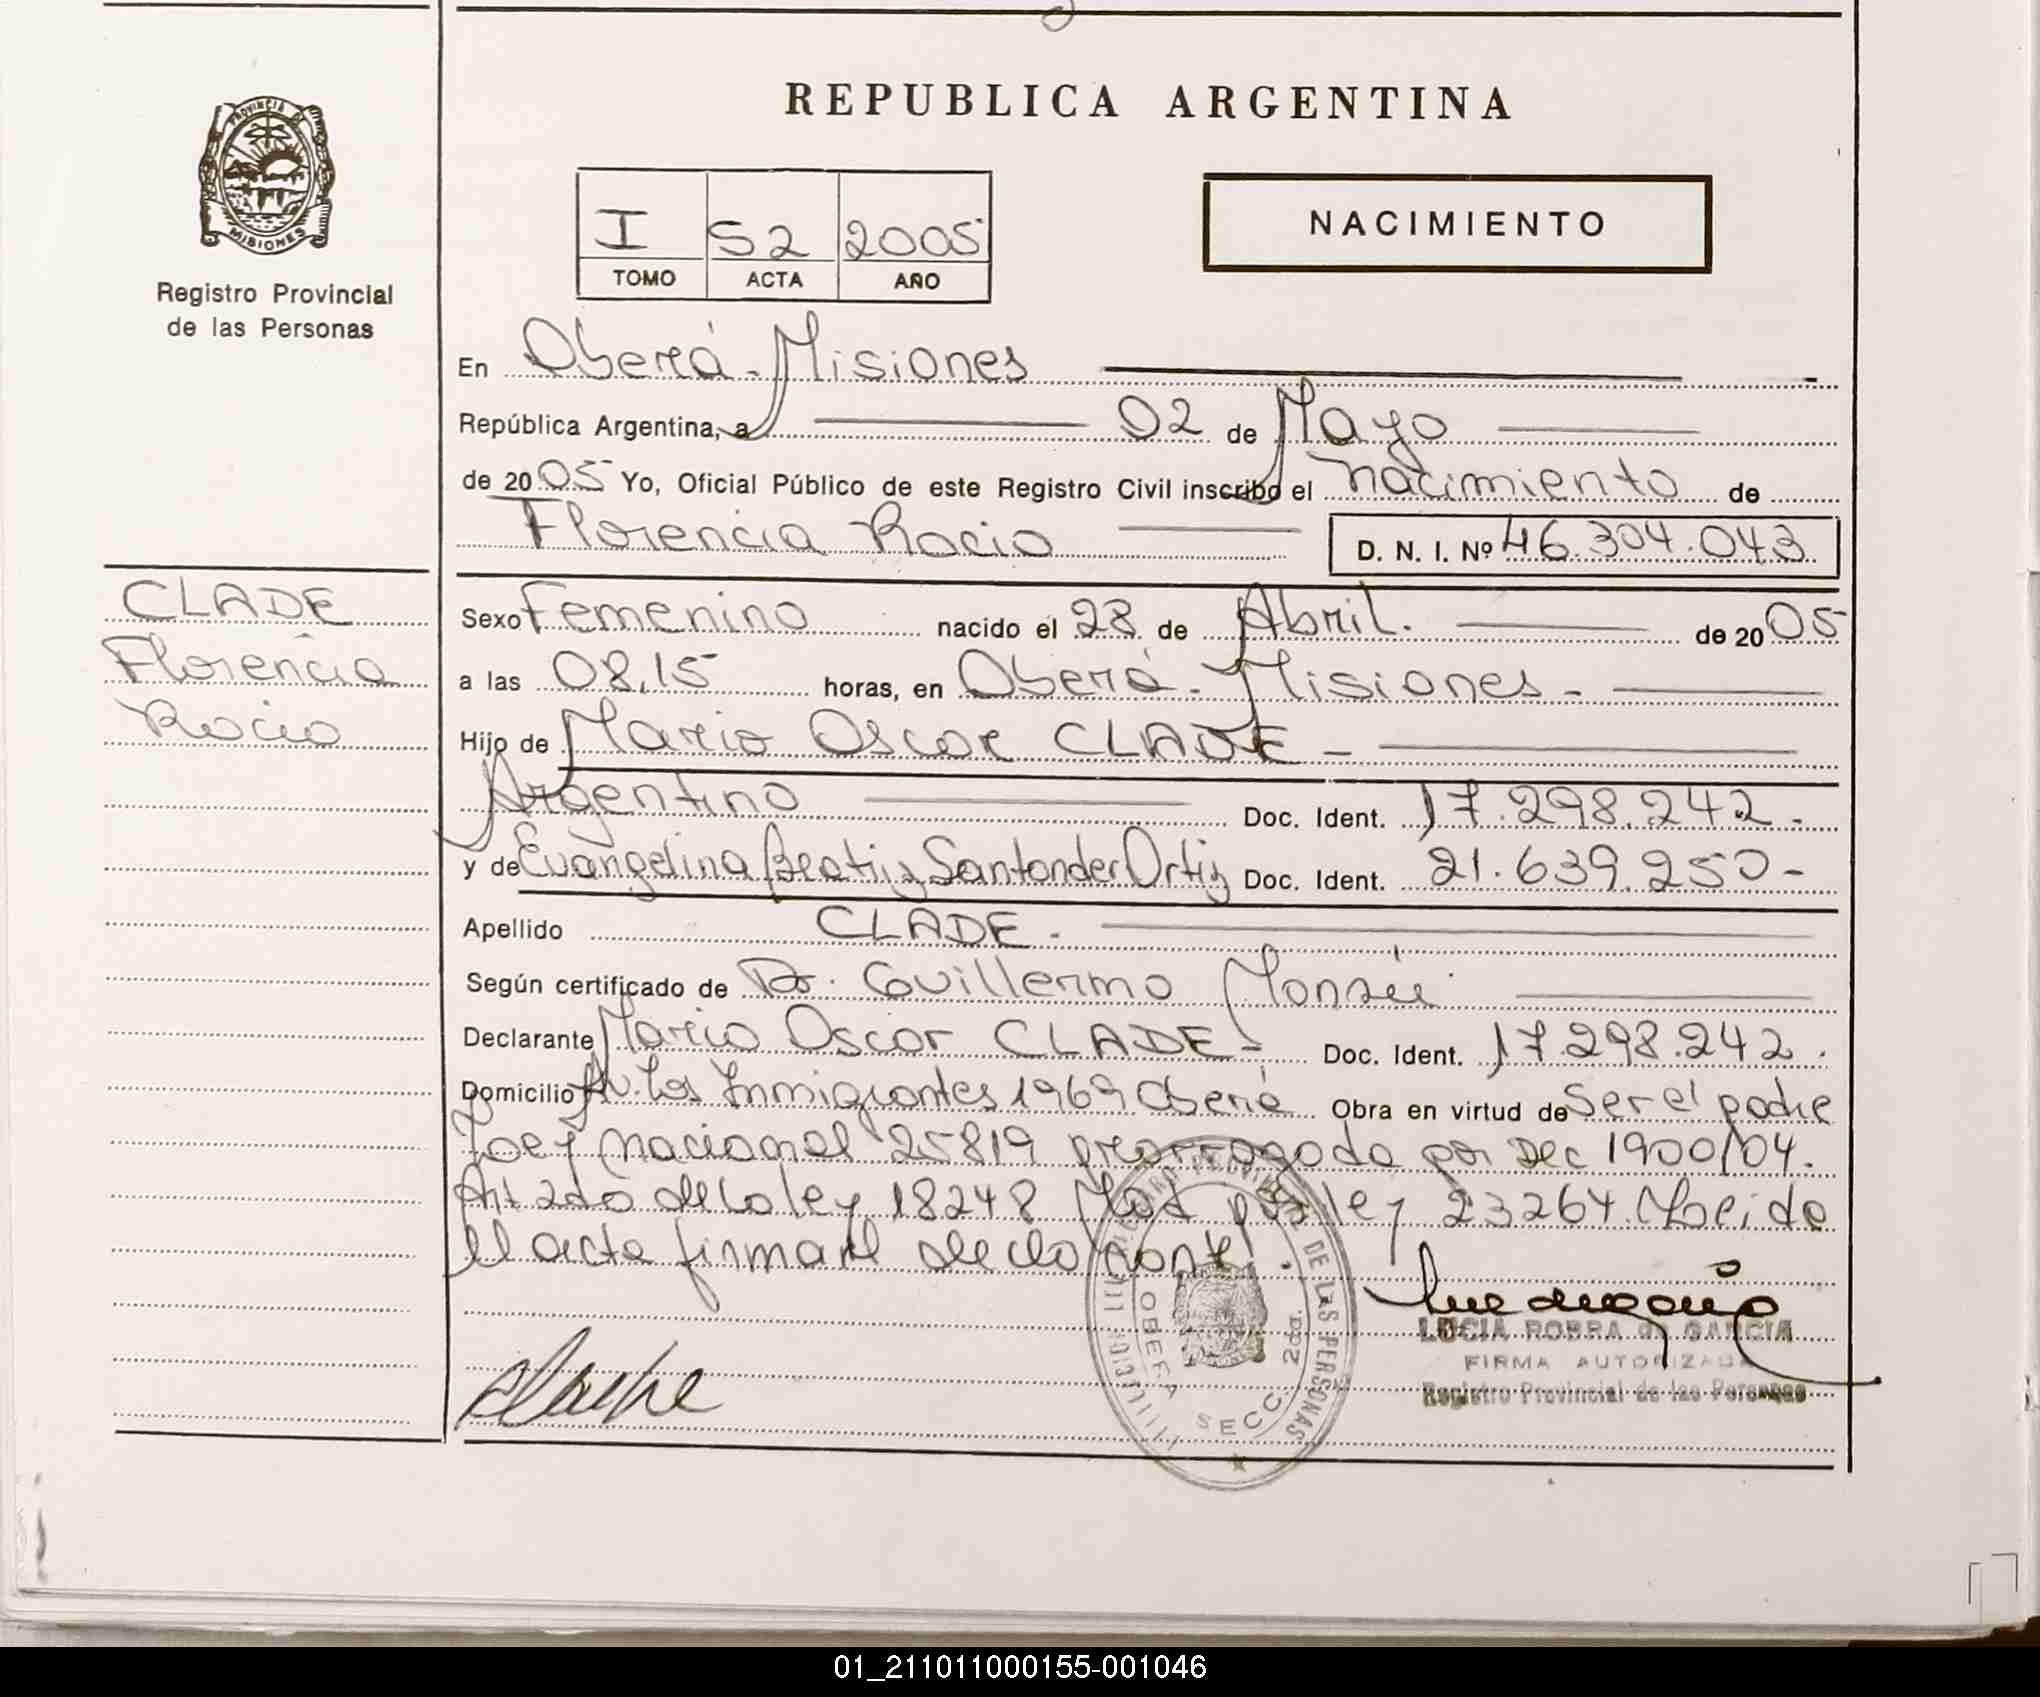 REPUBLICA ARGENTINA
PROVINCIA DE
MISIONES
Registro Provincial
de las Personas
I S2 2005
TOMO ACTA AÑO
NACIMIENTO
En Oberá - Misiones
República Argentina, a 02 de Mayo
de 2005 Yo, Oficial Público de este Registro Civil inscribo el nacimiento de
Florencia Rocio D. N. I. Nº 46.304.043
CLADE
Florencia
Rocio
Sexo Femenino nacido el 28 de Abril. de 2005
a las 08,15 horas, en Oberá - Misiones -
Hijo de Mario Oscar CLADE -
Argentino Doc. Ident. 17.298.242.-
y de Evangelina Beatriz Santander Ortiz Doc. Ident. 21.639.250-
Apellido CLADE.
Según certificado de Dr. Guillermo
Declarante Mario Oscar CLADE - Doc. Ident. 17.298.242.
Domicilio Av. Los Inmigrantes 1969 Oberá Obra en virtud de Ser el padre
Ley Nacional 25819 prorrogada por Dec 1900/04.
Art 2do de la ley 18248 Mod por ley 23264. Leida
el acta firma el declarante.
REGISTRO PROVINCIAL DE LAS PERSONAS
OBERA SECC. 2da.
LUCIA ROBRA de GARCIA
FIRMA AUTORIZADA
Registro Provincial de las Personas
01_211011000155-001046